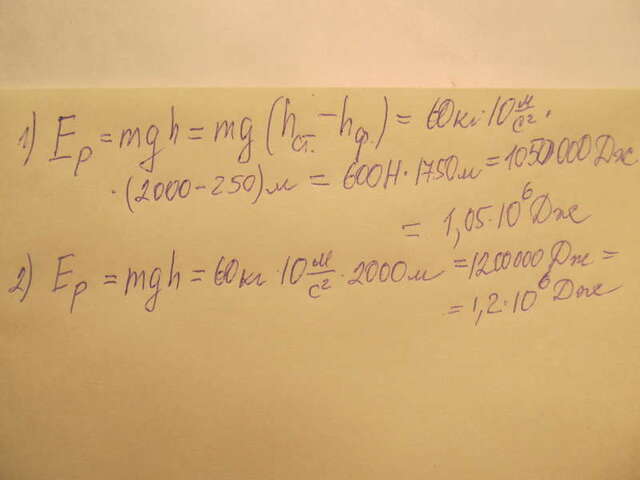 1) Eр = mgh = mg (hст. − hф.) = 60кг · 10 м/с² ·
· (2000 − 250)м = 600Н · 1750м = 1050000 Дж
= 1,05 · 10⁶ Дж
2) Eр = mgh = 60кг · 10 м/с² · 2000м = 1200000 Дж =
= 1,2 · 10⁶ Дж